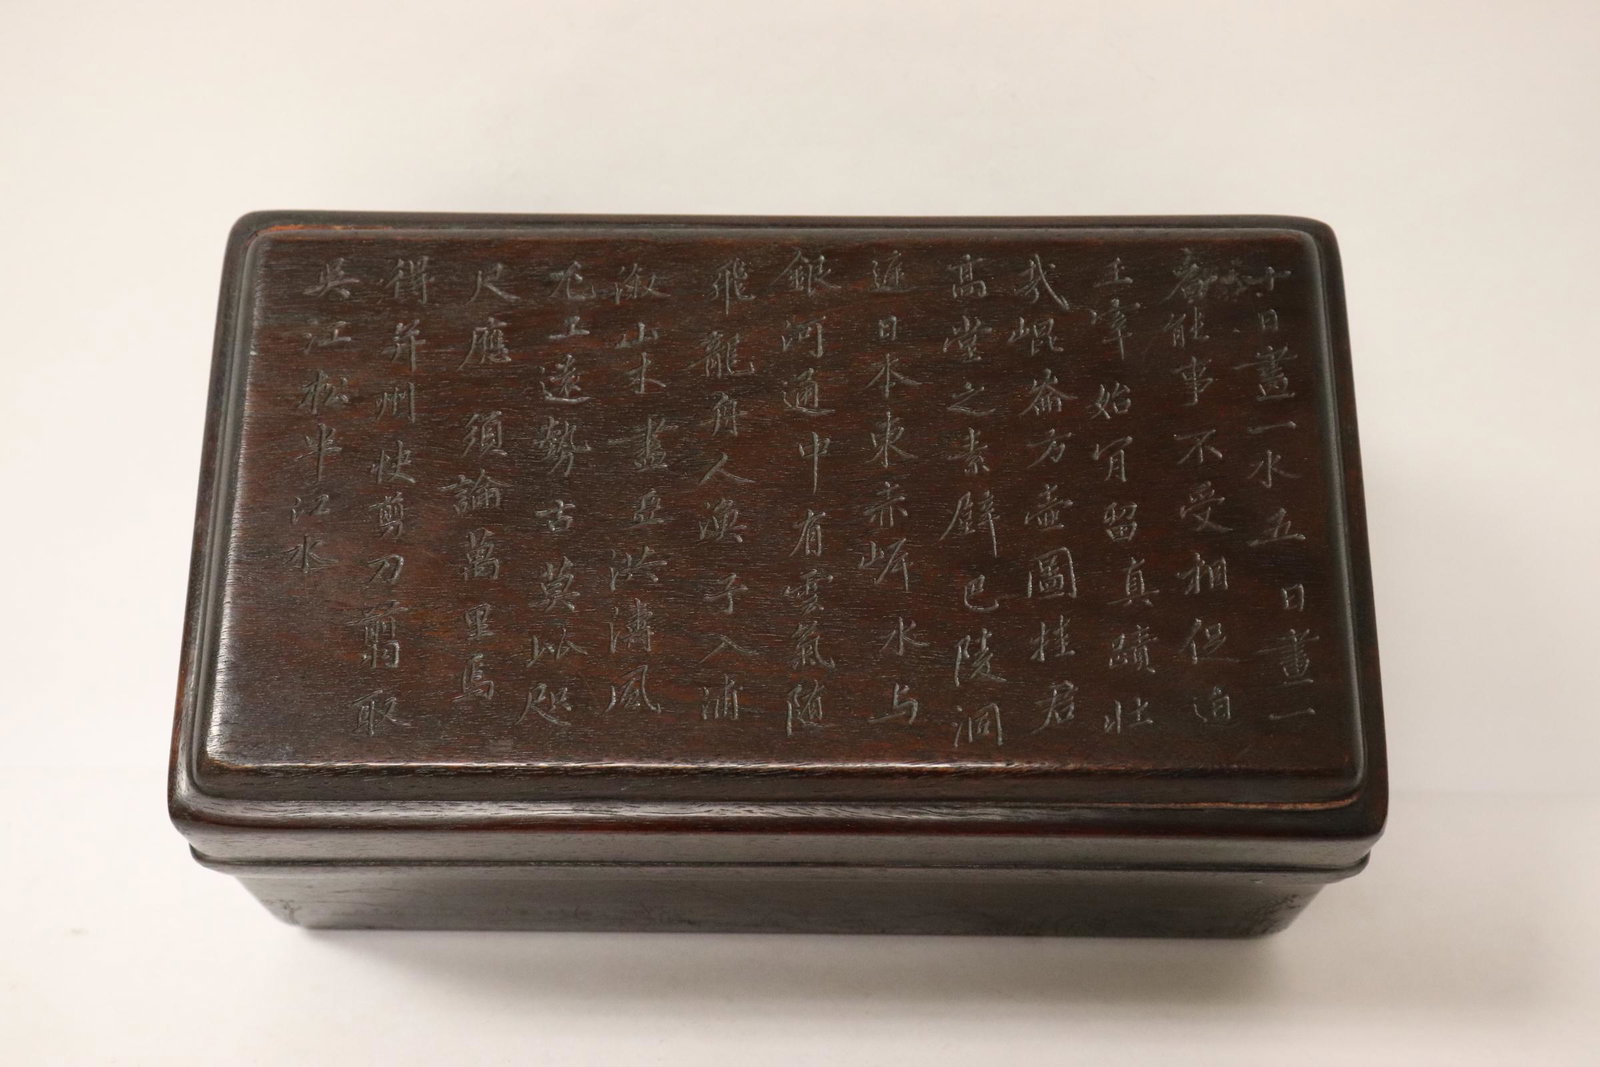 十日畫一水五日畫一
能事不受相促迫
王宰始肯留真蹟壯
哉崐崙方壺圖挂君
高堂之素壁巴陵洞
日本東赤岸水与
銀河通中有雲氣隨
飛龍舟人漁子入浦
漵山木盡亞洪濤風
尤工遠勢古莫比咫
尺應須論萬里焉
得并州快剪刀翦取
吳江松半江水